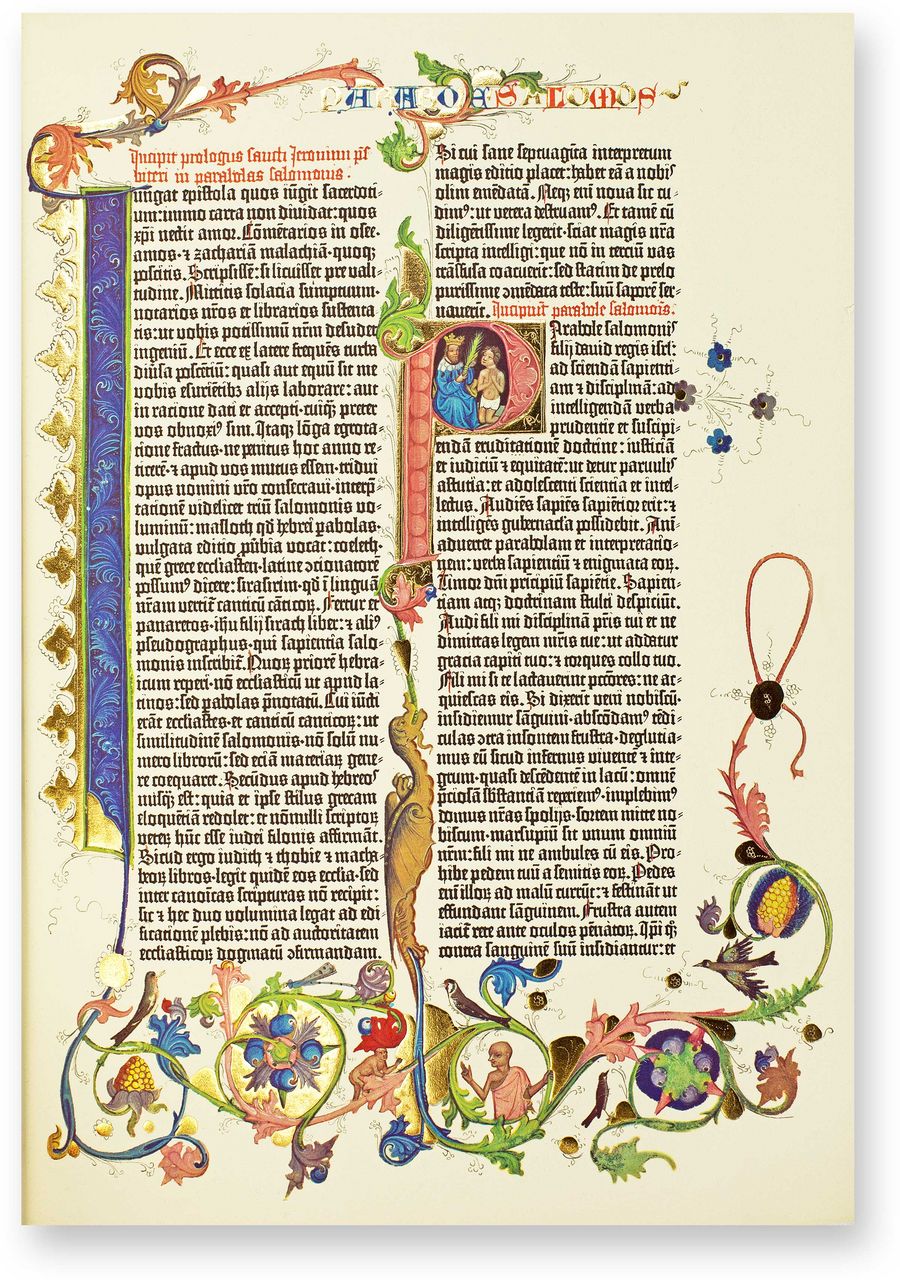 PARABOLE SALOMOS
Incipit prologus sancti Jeronimi pres
biteri in parabolas salomonis.
Iungat epistola quos iūgit sacerdoti-
um: immo carta non dividat: quos
xpi nectit amor. Cōmētarios in osee.
amos. ⁊ zachariā malachiā. quoqꝫ
poscitis. Scripsissē: si licuisset pre vali-
tudine. Mittitis solacia sumptuum.
notarios nr̄os et librarios sustenta-
tis: ut vobis potissimū nr̄m desudet
ingeniū. Et ecce ex latere frequēs turba
diūsa poscētiū: quasi aut equū sit me
vobis esuriētibꝫ alijs laborare: aut
in racione dati et accepti. cuiqꝫ preter
vos obnoxiꝰ sim. Itaqꝫ lōga egrota-
tione fractus. ne penitus hoc anno re-
ticerē. ⁊ apud vos mutus essem. tridui
opus nomini vr̄o consecravi. interp̄-
tationē videlicet triū salomonis vo-
luminū: masloth qd̄ hebrei pabolas.
vulgata editio pūbia vocat: coeleth.
quē grece ecclīasten. latine ↄcionatorē
possumꝰ dicere: sirasirim. qd̄ ī linguā
nr̄am vertit̄ canticū cāticoꝝ. Fertur et
panaretos. ihu filij sirach liber: ⁊ aliꝰ
pseudographus. qui sapientia salo-
monis inscribit̄. Quoꝝ priorē hebra-
icum reperi. nō ecclīasticū ut apud la-
tinos: sed pabolas p̄notatū. Cui iūcti
erāt ecclīastes. et canticū canticoꝝ: ut
similitudinē salomonis. nō solū nu-
mero librorū: sed eciā materiaꝝ gene-
re coequaret. Secūdus apud hebreos
nusqꝫ est: quia et ipse stilus grecam
eloquētiā redolet: et nōnulli scriptoꝝ
veteꝝ hūc esse iudei filonis affirmāt.
Sicud ergo iudith ⁊ thobie ⁊ macha-
beoꝝ libros. legit quidē eos ecclīa. sed
inter canonicas scripturas nō recipit:
sic ⁊ hec duo volumina legat ad edi-
ficationē plebis: nō ad auctoritatem
ecclīasticoꝝ dogmatū ↄfirmandam.
Si cui sane septuagīta interpretum
magis editio placet: habet eā a nobis
olim emēdatā. Neqꝫ enī nova sic cu-
dimꝰ: ut vetera destruamꝰ. Et tamē cū
diligētissime legerit. sciat magis nr̄a
scripta intelligi: que nō in terciū vas
trāsfusa coacuerīt: sed statim de prelo
purissime ↄmēdata teste: suū saporē ser-
vaverīt. Incipiunt parabole salomonis.
Parabole salomonis
filij david regis isrl̄:
ad sciendā sapienti-
am ⁊ disciplinā: ad
intelligendā verba
prudentie et suscipi-
endā eruditationē doctrine: iusticiā
et iudiciū ⁊ equitatē: ut detur parvulis
astutia: et adolescenti scientia et intel-
lectus. Audiēs sapiēs sapiētior erit: ⁊
intelligēs gubernacla possidebit. Ani-
advertet parabolam et interpretatio-
nem: verba sapientiū ⁊ enigmata eoꝝ.
Timor dn̄i principiū sapiētie. Sapien-
tiam atqꝫ doctrinam stulti despiciūt.
Audi fili mi disciplinā pr̄is tui et ne
dimittas legem mr̄is tue: ut addatur
gracia capiti tuo: ⁊ torques collo tuo.
Fili mi si te lactaverint pctōres: ne ac-
quiescas eis. Si dixerīt veni nobiscū.
insidiemur sāguini. abscōdamꝰ tēdi-
culas ↄtra insontem frustra. deglutia-
mus eū sicud infernus viventē ⁊ inte-
grum. quasi descēdentē in lacū: omnē
p̄ciosā sb̄stantiā reperiemꝰ. implebimꝰ
domus nr̄as spolijs. sortem mitte no-
biscum. marsupiū sit unum omniū
nr̄m: fili mi ne ambules cū eis. Pro-
hibe pedem tuū a semitis eoꝝ. Pedes
enī illoꝝ ad malū currūt: ⁊ festināt ut
effundant sāguinem. Frustra autem
iacit̄ rete ante oculos pēnatoꝝ. Ipi qꝫ
contra sanguinē suū insidiantur: et